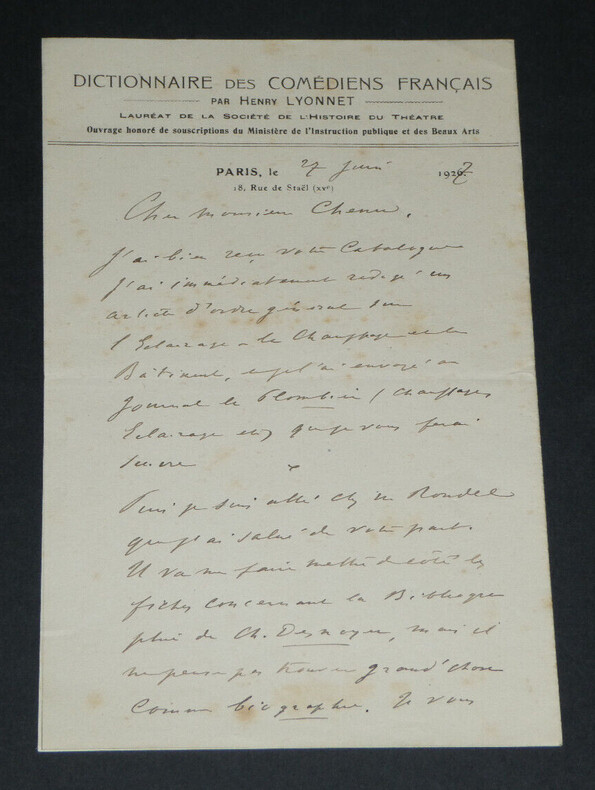 DICTIONNAIRE DES COMÉDIENS FRANÇAIS
PAR HENRY LYONNET
LAURÉAT DE LA SOCIÉTÉ DE L'HISTOIRE DU THÉATRE
Ouvrage honoré de souscriptions du Ministère de l'Instruction publique et des Beaux Arts
PARIS, le 27 Juin 1927
18, Rue de Staël (XVe)
Cher Monsieur
J'ai bien reçu votre Catalogue
J'ai immédiatement rédigé un
article d'ordre général sur
l'Eclairage le Chauffage et le
Bâtiment, et je l'ai envoyé au
Journal le Plombier (Chauffages
Eclairage etc) que je vous ferai
suivre
Puis je suis allé chez M Rondel
que j'ai salué de votre part.
Il va me faire mettre de côté les
fiches concernant la Bibliogra
phie de Ch. Desnoyer, mais il
ne pense pas trouver grand'chose
comme biographie. Je vous